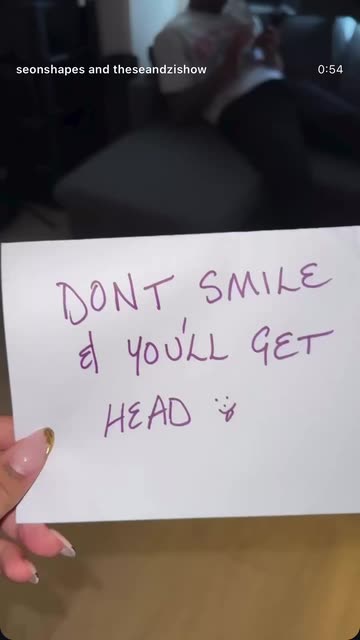 seonshapes and theseandzishow 0:54
DONT SMILE
& YOU'LL GET
HEAD